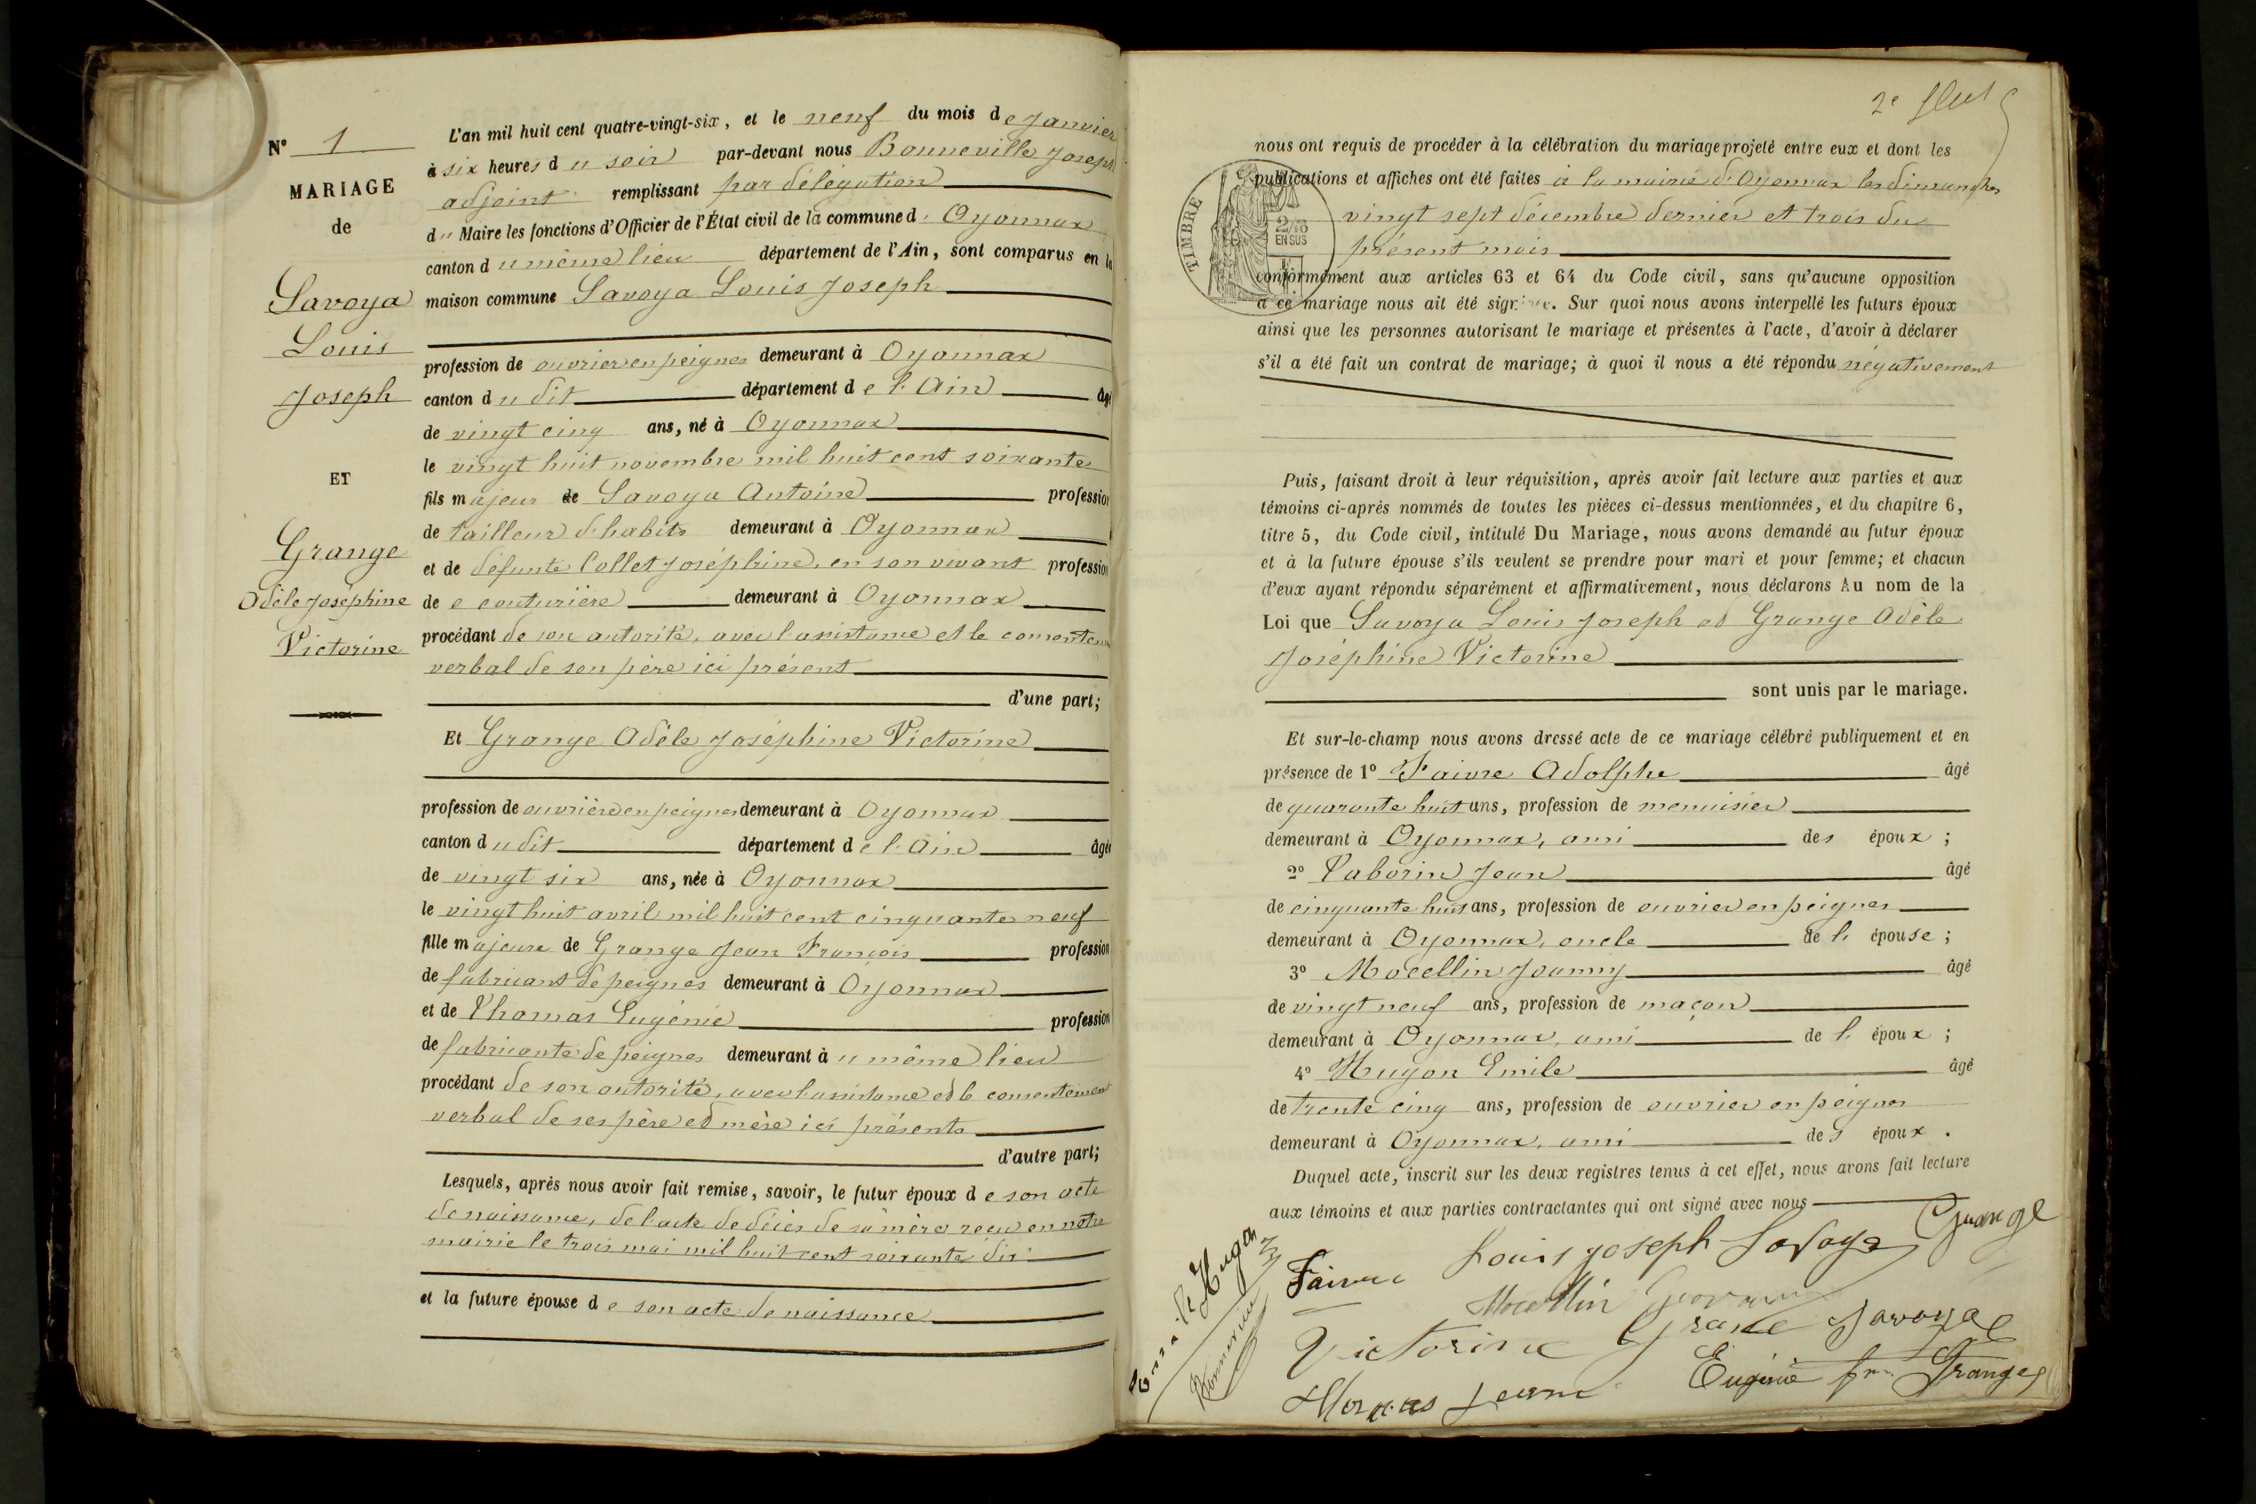 N° 1
MARIAGE
de
Savoya
Louis
Joseph
ET
Grange
Adèle Joséphine
Victorine
L'an mil huit cent quatre-vingt-six, et le neuf du mois de Janvier
à six heures du soir par-devant nous Bonneville Joseph
adjoint remplissant par délégation
du Maire les fonctions d'Officier de l'État civil de la commune d' Oyonnax
canton du même lieu département de l'Ain, sont comparus en la
maison commune Savoya Louis Joseph
profession de ouvrier en peignes demeurant à Oyonnax
canton dudit département de l'Ain âgé
de vingt cinq ans, né à Oyonnax
le vingt huit novembre mil huit cent soixante
fils majeur de Savoya Antoine profession
de tailleur d'habits demeurant à Oyonnax
et de défunte Collet Joséphine, en son vivant profession
de couturière demeurant à Oyonnax
procédant de son autorité, avec l'assistance et le consentement
verbal de son père ici présent
d'une part;
Et Grange Adèle Joséphine Victorine
profession de ouvrière en peignes demeurant à Oyonnax
canton dudit département de l'Ain âgée
de vingt six ans, née à Oyonnax
le vingt huit avril mil huit cent cinquante neuf
fille majeure de Grange Jean François profession
de fabricant de peignes demeurant à Oyonnax
et de Thomas Eugénie profession
de fabricante de peignes demeurant au même lieu
procédant de son autorité, avec l'assistance et le consentement
verbal de ses père et mère ici présents
d'autre part;
Lesquels, après nous avoir fait remise, savoir, le futur époux de son acte
de naissance, de l'acte de décès de sa mère reçu en notre
mairie le trois mai mil huit cent soixante dix
et la future épouse de son acte de naissance
2e
nous ont requis de procéder à la célébration du mariage projeté entre eux et dont les
publications et affiches ont été faites à la mairie d'Oyonnax les dimanches
vingt sept décembre dernier et trois du
présent mois
TIMBRE
EN SUS
conformément aux articles 63 et 64 du Code civil, sans qu'aucune opposition
à ce mariage nous ait été signifiée. Sur quoi nous avons interpellé les futurs époux
ainsi que les personnes autorisant le mariage et présentes à l'acte, d'avoir à déclarer
s'il a été fait un contrat de mariage; à quoi il nous a été répondu négativement
Puis, faisant droit à leur réquisition, après avoir fait lecture aux parties et aux
témoins ci-après nommés de toutes les pièces ci-dessus mentionnées, et du chapitre 6,
titre 5, du Code civil, intitulé Du Mariage, nous avons demandé au futur époux
et à la future épouse s'ils veulent se prendre pour mari et pour femme; et chacun
d'eux ayant répondu séparément et affirmativement, nous déclarons Au nom de la
Loi que Savoya Louis Joseph et Grange Adèle
Joséphine Victorine
sont unis par le mariage.
Et sur-le-champ nous avons dressé acte de ce mariage célébré publiquement et en
présence de 1° Faivre Adolphe âgé
de quarante huit ans, profession de menuisier
demeurant à Oyonnax, ami des époux ;
2° Taborin Jean âgé
de cinquante huit ans, profession de ouvrier en peignes
demeurant à Oyonnax, oncle de l' épouse ;
3° Mocellin Joanny âgé
de vingt neuf ans, profession de maçon
demeurant à Oyonnax, ami de l' époux ;
4° Hugon Emile âgé
de trente cinq ans, profession de ouvrier en peignes
demeurant à Oyonnax, ami des époux .
Duquel acte, inscrit sur les deux registres tenus à cet effet, nous avons fait lecture
aux témoins et aux parties contractantes qui ont signé avec nous
Louis Joseph Savoya Grange
Faivre
Mocellin
Victorine Grange Savoya
Eugénie Grange
Hugon